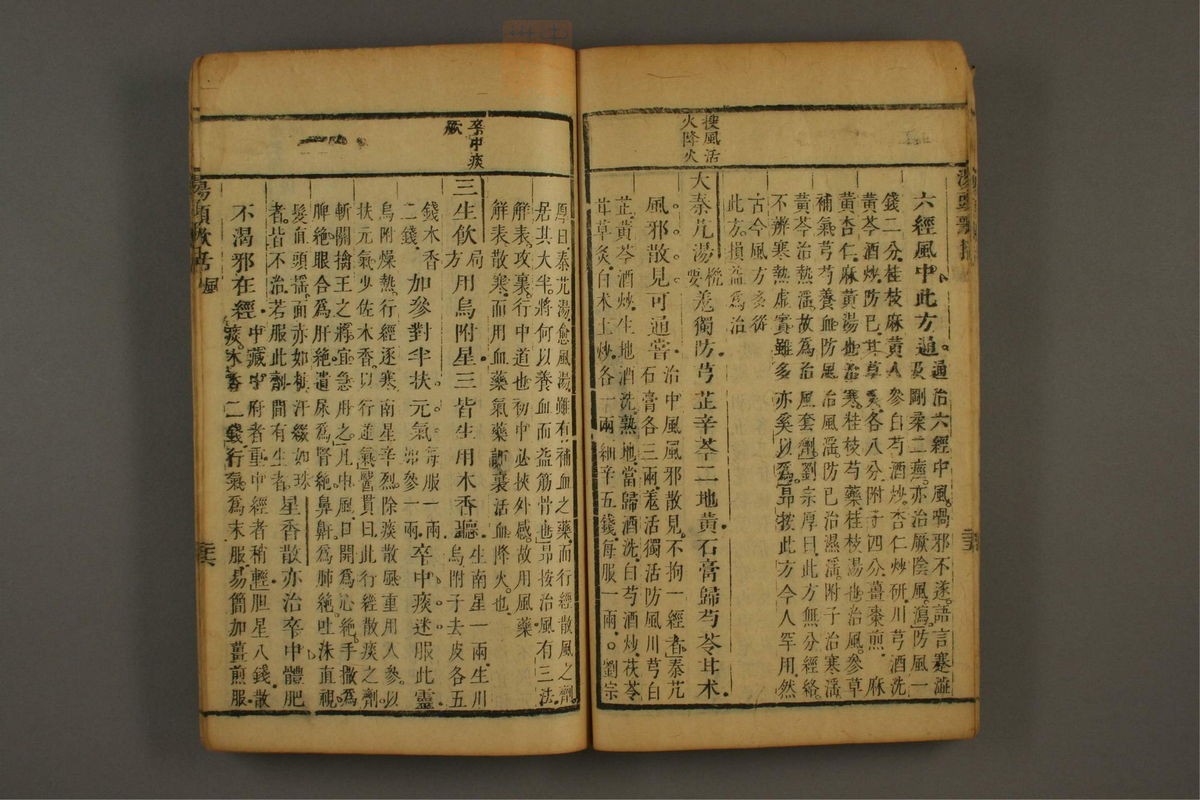 搜風活
火降火
六經風中此方通。
通治六經中風喎邪不遂語言蹇澁
及剛柔二痙亦治厥陰風瀉防風一
錢二分桂枝麻黃人參白芍酒炒杏仁炒研川芎酒洗
黃芩酒炒防已甘草炙各八分附子四分薑棗煎 麻
黃杏仁麻黃湯也治寒桂枝芍藥桂枝湯也治風參草
補氣芎芍養血防風治風滛防已治濕滛附子治寒滛
黃芩治熱滛故爲治風套劑劉宗厚曰此方無分經絡
不辨寒熱虛實雖多亦奚以爲昂按此方今人罕用然
古今風方多從
此方損益爲治
大秦艽湯 機要 羗獨防芎芷辛芩二地黃石膏歸芍苓甘术
風邪散見可通嘗
治中風風邪散見不拘一經者秦艽
石膏各三兩羗活獨活防風川芎白
芷黃芩酒炒生地酒洗熟地當歸酒洗白芍酒炒茯苓
甘草炙白术土炒各一兩細辛五錢每服一兩。劉宗
卒中痰
厥
厚曰秦艽湯愈風湯雖有補血之藥而行經散風之劑
居其大半將何以養血而益筋骨也昂按治風有三法
解表攻裏行中道也初中必挾外感故用風藥
解表散寒而用血藥氣藥調裏活血降火也
三生飲 局方 用烏附星三皆生用木香聽
生南星一兩生川
烏附子去皮各五
錢木香
二錢
加參對半扶元氣
每服一兩
加參一兩
卒中痰迷服此靈
烏附燥熱行經逐寒南星辛烈除痰散風重用人參以
扶元氣少佐木香以行逆氣醫貫曰此行經散痰之劑
斬關擒王之將宜急用之凡中風口開爲心絕手撒爲
脾絕眼合爲肝絕遺尿爲腎絕鼻鼾爲肺絕吐沫直視
髮直頭搖面赤如粧汗綴如珠
者皆不治若服此劑間有生者
星香散亦治卒中體肥
不渴邪在經
中藏中府者重中經者稍輕胆星八錢散
痰木香二錢行氣爲末服易簡加薑煎服